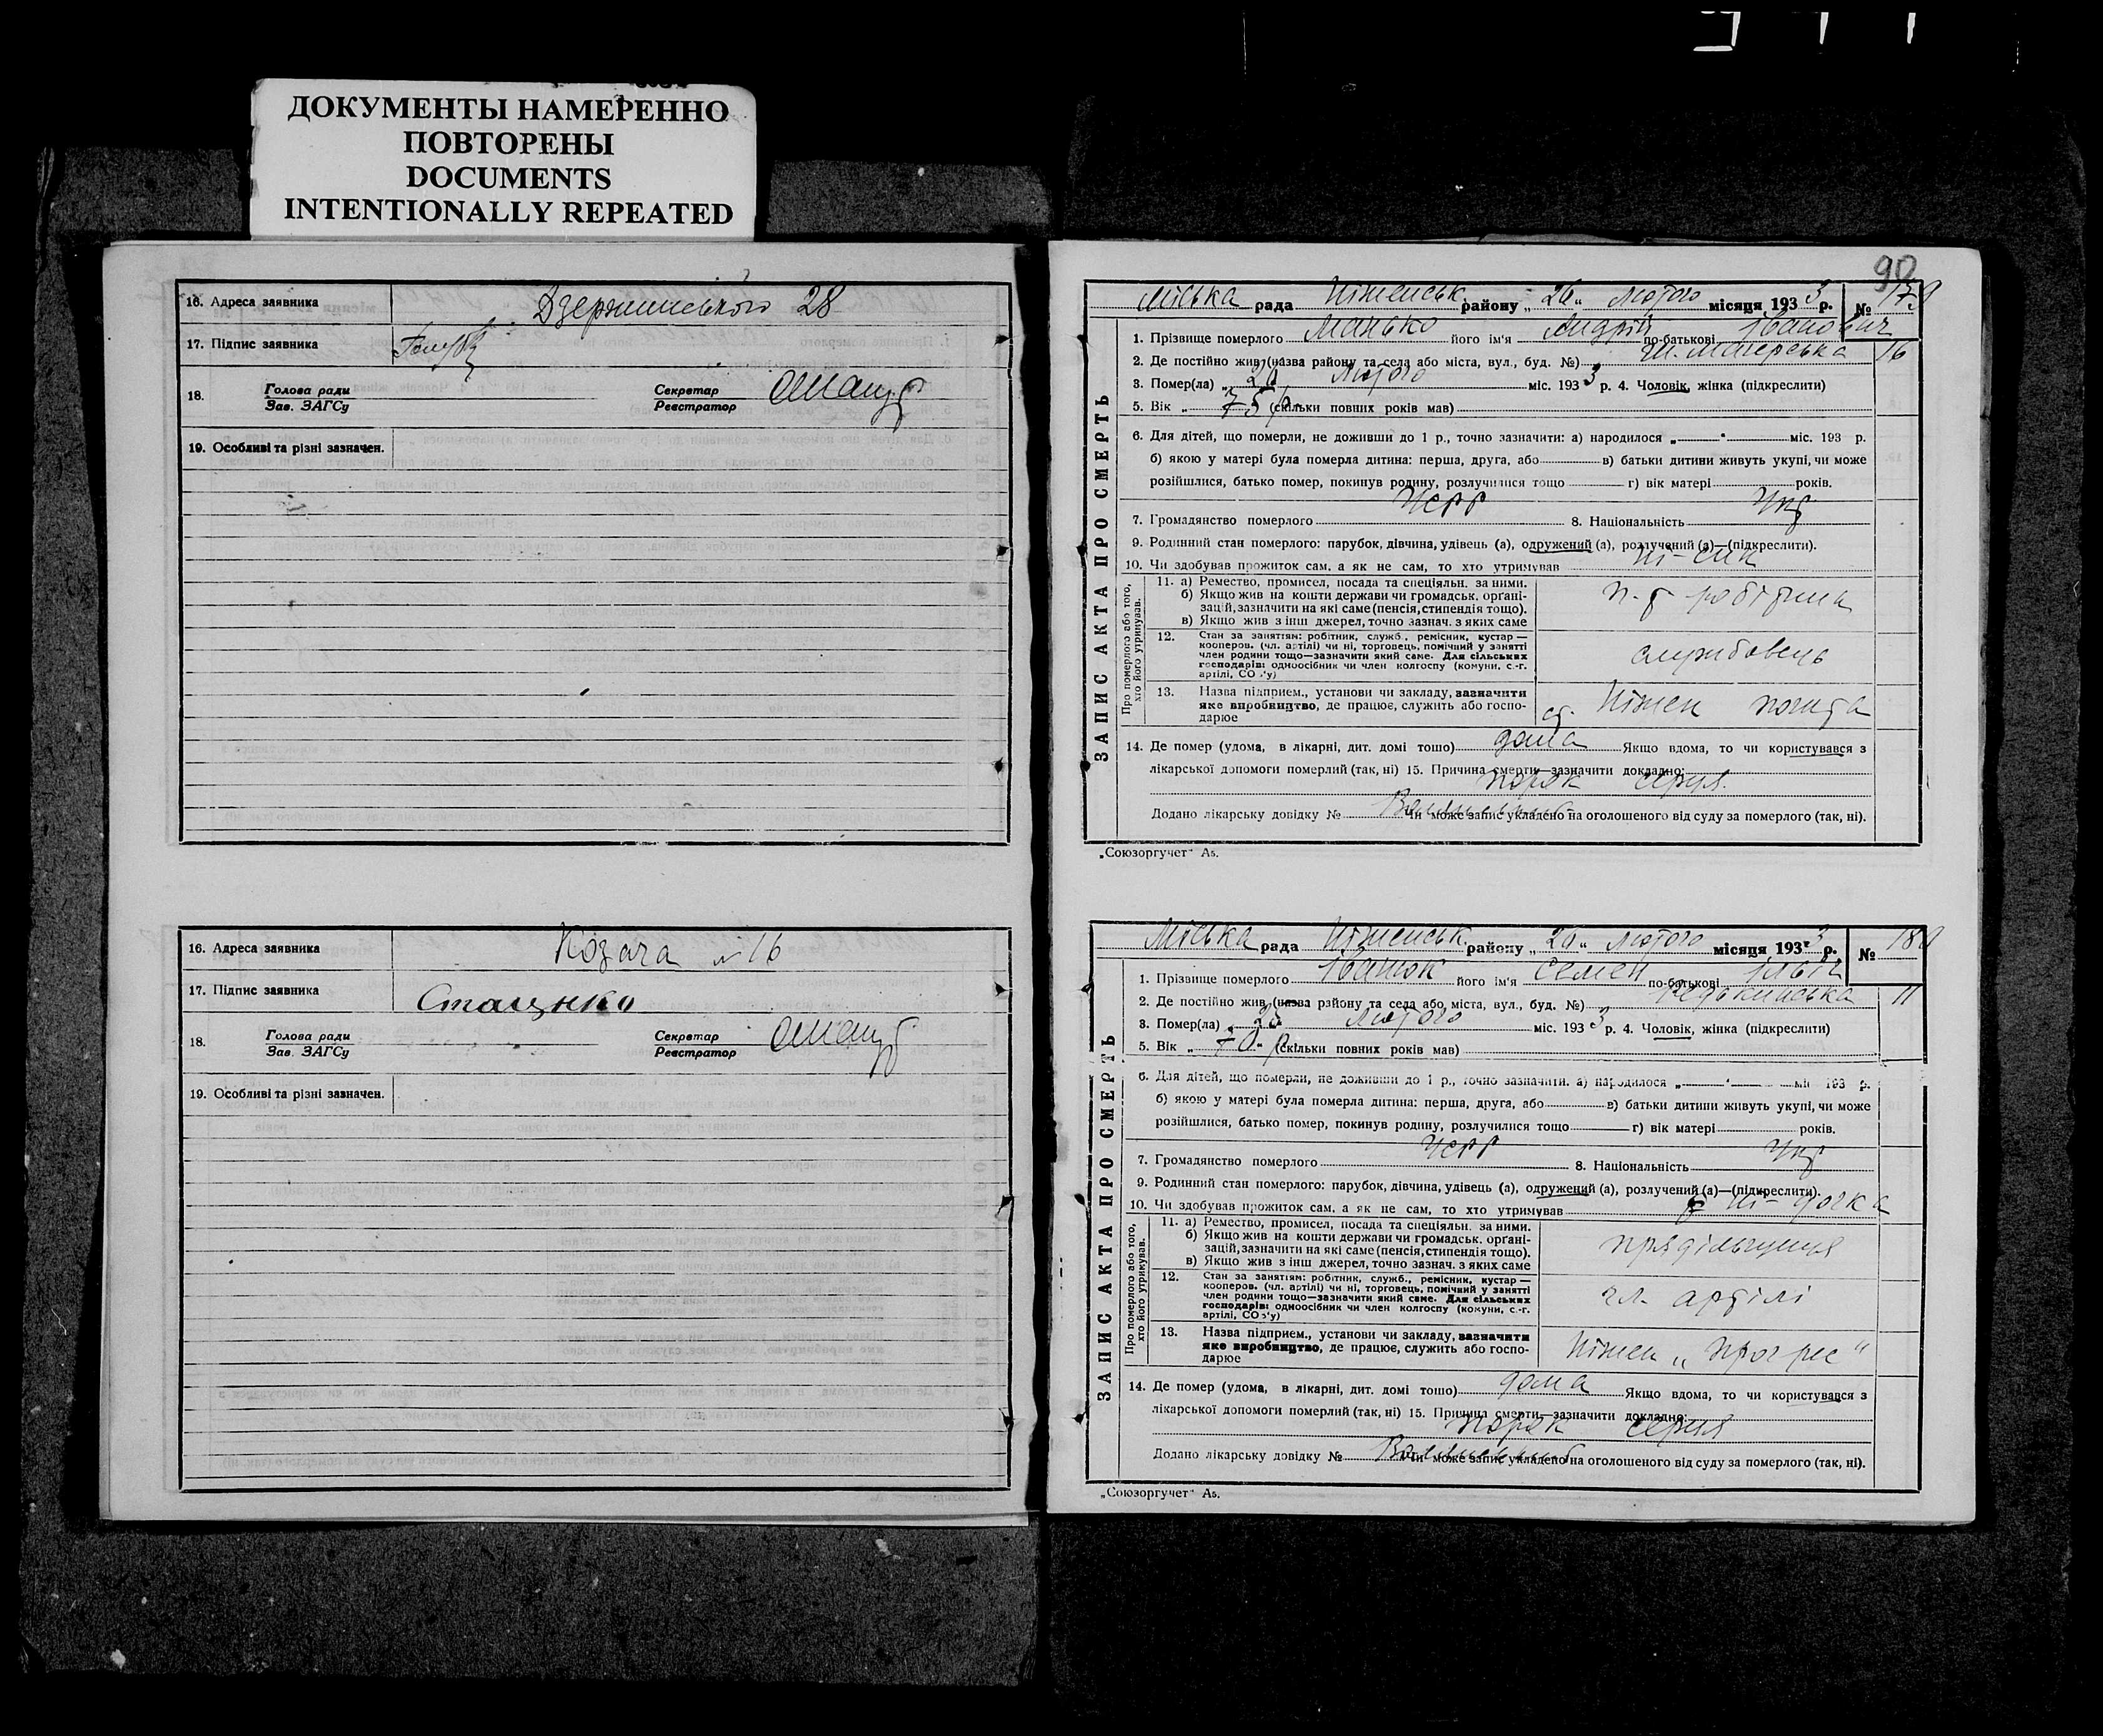 ДОКУМЕНТЫ НАМЕРЕННО
ПОВТОРЕНЫ
DOCUMENTS
INTENTIONALLY REPEATED
16. Адреса заявника Дзержинського 28
17. Підпис заявника
18. Голова ради Секретар
Зав. ЗАГСу Реєстратор
19. Особливі та різні зазначен.
16. Адреса заявника Козача № 16
17. Підпис заявника Стащнко
18. Голова ради Секретар
Зав. ЗАГСу Реєстратор
19. Особливі та різні зазначен.
90
ЗАПИС АКТА ПРО СМЕРТЬ
Міська рада Ніженськ. району „26" лютого місяця 1933 р. № 179
1. Прізвище померлого Манько його ім'я Андрій по-батькові Іванович
2. Де постійно жив (назва району та села або міста, вул., буд. №) Ш. Магерська 16
3. Помер(ла) „ лютого міс. 1933 р. 4. Чоловік, жінка (підкреслити)
5. Вік „75 р. (скільки повних років мав)
6. Для дітей, що померли, не доживши до 1 р., точно зазначити: а) народилося „ " міс. 193 р.
б) якою у матері була померла дитина: перша, друга, або в) батьки дитини живуть укупі, чи може
розійшлися, батько помер, покинув родину, розлучилися тощо г) вік матері років.
7. Громадянство померлого УСРР 8. Національність Укр
9. Родинний стан померлого: парубок, дівчина, удівець (а), одружений (а), розлучений (а)—(підкреслити).
10. Чи здобував прожиток сам, а як не сам, то хто утримував Ні - син
Про померлого або того, хто його утримував.
11. а) Ремество, промисел, посада та спеціяльн. за ними.
б) Якщо жив на кошти держави чи громадськ. орґані-
зацій, зазначити на які саме (пенсія, стипендія тощо).
в) Якщо жив з інш джерел, точно зазнач. з яких саме
п-т робітника
12. Стан за заняттям: робітник, служб., ремісник, кустар —
кооперов. (чл. артілі) чи ні, торговець, помічний у занятті
член родини тощо—зазначити який саме. Для сільських
господарів: одноосібник чи член колгоспу (комуни, с.-г.
артілі, СОЗ'у)
службовець
13. Назва підприєм., установи чи закладу, зазначити
яке виробництво, де працює, служить або госпо-
дарює
ст. Ніжен пошта
14. Де помер (удома, в лікарні, дит. домі тощо) дома Якщо вдома, то чи користувався з
лікарської допомоги померлий (так, ні) 15. Причина смерти—зазначити докладно:
порок серця.
Додано лікарську довідку № Чи може запис укладено на оголошеного від суду за померлого (так, ні).
„Союзоргучет" А5.
ЗАПИС АКТА ПРО СМЕРТЬ
Міська рада Ніженськ. району „26" лютого місяця 1933 р. № 180
1. Прізвище померлого Івашок його ім'я Семен по-батькові Ільїч
2. Де постійно жив (назва району та села або міста, вул., буд. №) Редькинська 11
3. Помер(ла) „25 лютого міс. 1933 р. 4. Чоловік, жінка (підкреслити)
5. Вік „70" р (скільки повних років мав)
6. Для дітей, що померли, не доживши до 1 р., точно зазначити: а) народилося „ " міс 193 р.
б) якою у матері була померла дитина: перша, друга, або в) батьки дитини живуть укупі, чи може
розійшлися, батько помер, покинув родину, розлучилися тощо г) вік матері років.
7. Громадянство померлого УСРР 8. Національність Укр
9. Родинний стан померлого: парубок, дівчина, удівець (а), одружений (а), розлучений (а)—(підкреслити).
10. Чи здобував прожиток сам, а як не сам, то хто утримував Ні - дочка
Про померлого або того, хто його утримував.
11. а) Ремество, промисел, посада та спеціяльн. за ними.
б) Якщо жив на кошти держави чи громадськ. орґані-
зацій, зазначити на які саме (пенсія, стипендія тощо).
в) Якщо жив з інш джерел, точно зазнач. з яких саме
прядільщиця
12. Стан за заняттям: робітник, служб., ремісник, кустар —
кооперов. (чл. артілі) чи ні, торговець, помічний у занятті
член родини тощо—зазначити який саме. Для сільських
господарів: одноосібник чи член колгоспу (комуни, с.-г.
артілі, СОЗ'у)
чл. артілі
13. Назва підприєм., установи чи закладу, зазначити
яке виробництво, де працює, служить або госпо-
дарює
Ніжен „Прогрес"
14. Де помер (удома, в лікарні, дит. домі тощо) дома Якщо вдома, то чи користувався з
лікарської допомоги померлий (так, ні) 15. Причина смерти—зазначити докладно:
порок серця
Додано лікарську довідку № Чи може запис укладено на оголошеного від суду за померлого (так, ні).
„Союзоргучет" А5.